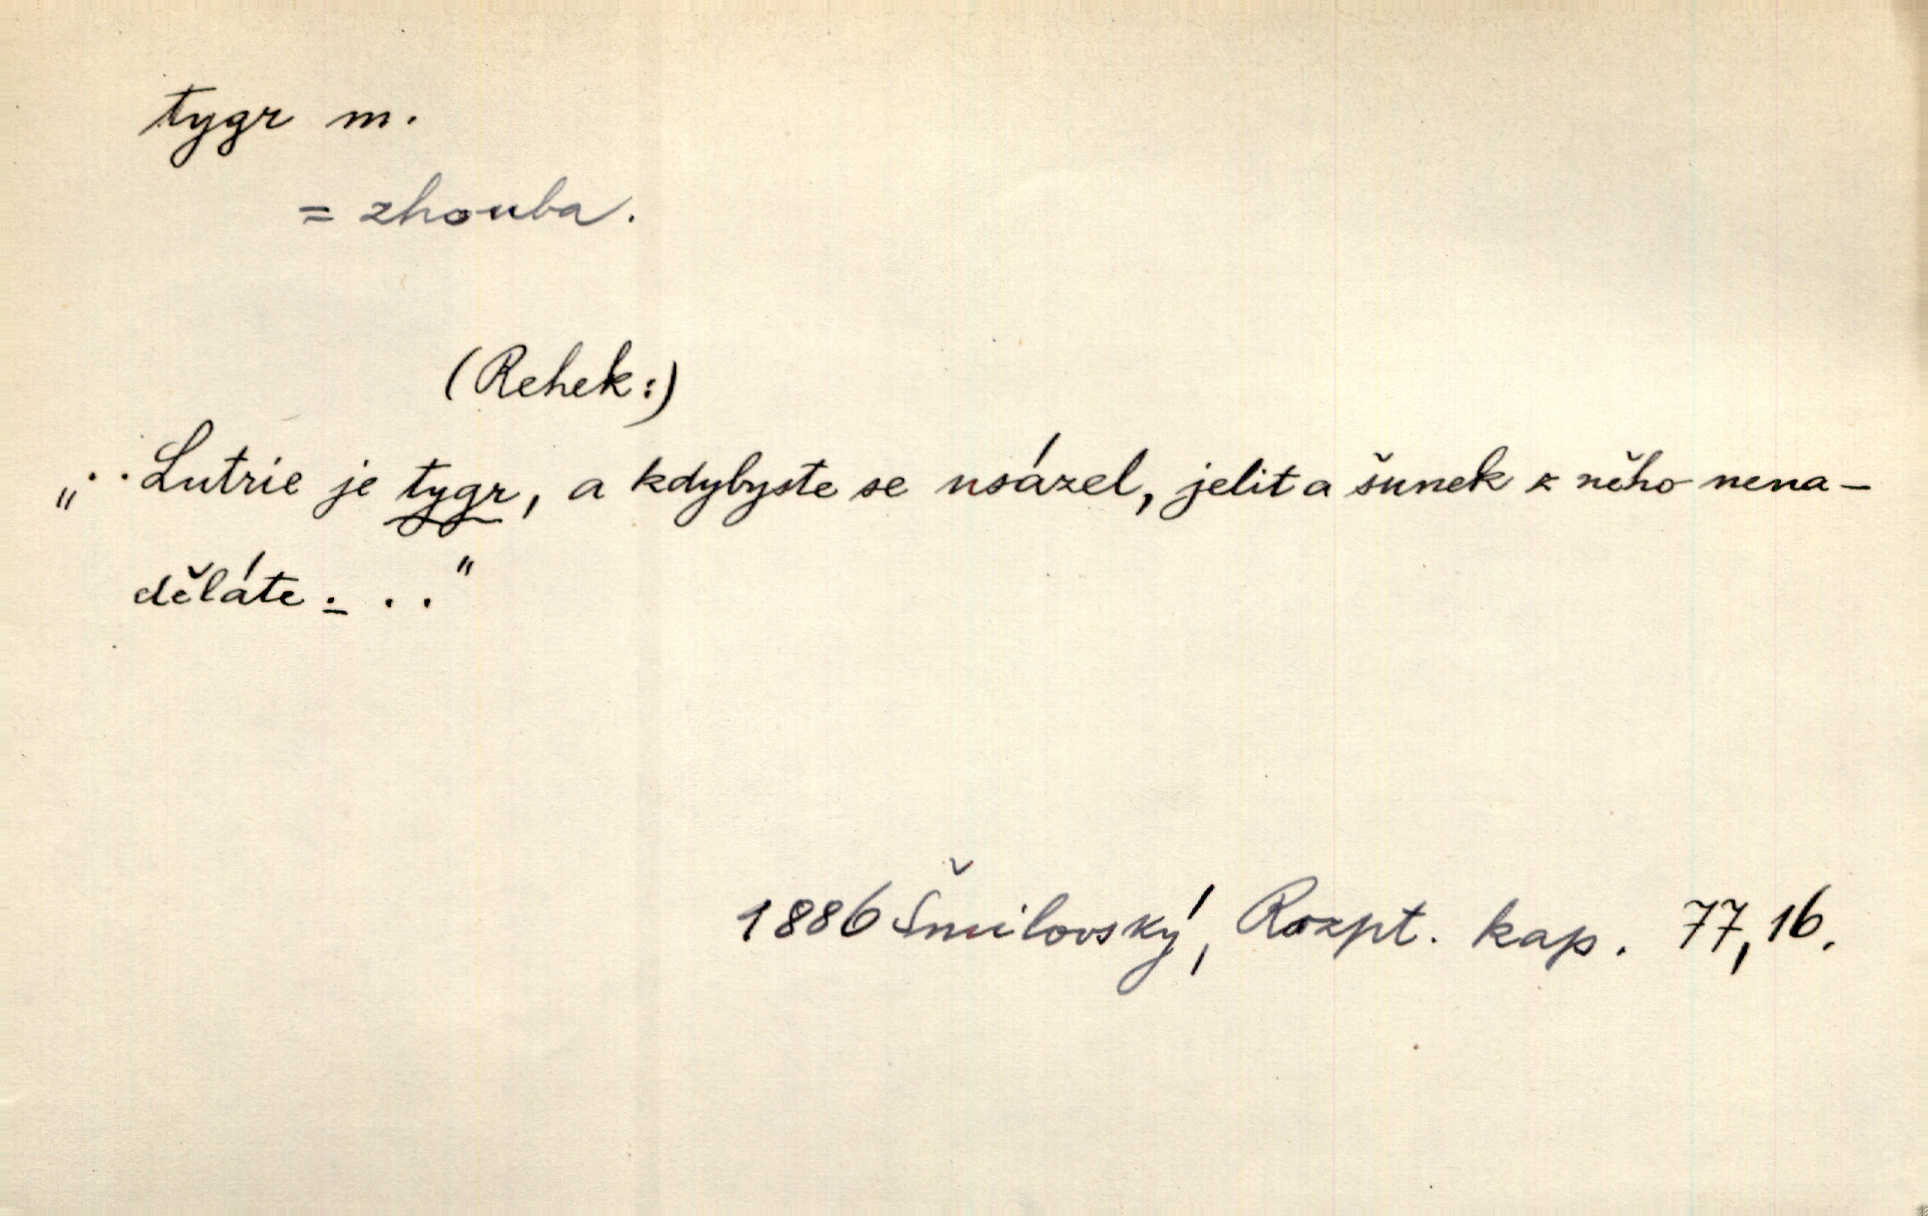 tygr m.
= zhouba.
(Rehek:)
„..Lutrie je tygr, a kdybyste se usázel, jelit a šunek z něho nena-
děláte. . .“
1886 Šmilovský, Rozpt. kap. 77,16.